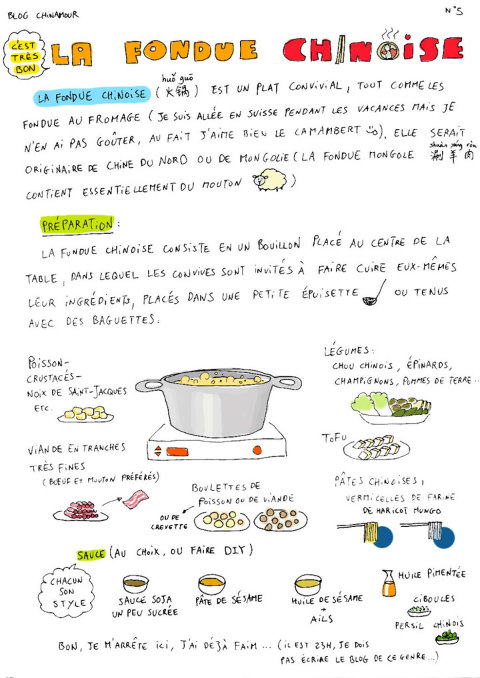 BLOG CHINAMOUR
N°5
C'EST
TRÈS
BON
LA FONDUE CHINOISE
huǒ guō
LA FONDUE CHINOISE (火鍋) EST UN PLAT CONVIVIAL, TOUT COMME LES
FONDUE AU FROMAGE (JE SUIS ALLÉE EN SUISSE PENDANT LES VACANCES MAIS JE
N'EN AI PAS GOÛTER, AU FAIT J'AIME BIEU LE CAMAMBERT), ELLE SERAIT
ORIGINAIRE DE CHINE DU NORD OU DE MONGOLIE (LA FONDUE MONGOLE 涮羊肉
CONTIENT ESSENTIELLEMENT DU MOUTON)
PRÉPARATION :
LA FONDUE CHINOISE CONSISTE EN UN BOUILLON PLACÉ AU CENTRE DE LA
TABLE, DANS LEQUEL LES CONVIVES SONT INVITÉS À FAIRE CUIRE EUX-MÊMES
LEUR INGRÉDIENTS, PLACÉS DANS UNE PETITE ÉPUISETTE OU TENUS
AVEC DES BAGUETTES.
POISSON-
CRUSTACÉS-
NOIX DE SAINT-JACQUES
ETC.
LÉGUMES :
CHOU CHINOIS, ÉPINARDS,
CHAMPIGNONS, POMMES DE TERRE...
TOFU
VIANDE EN TRANCHES
TRÈS FINES
(BŒUF ET MOUTON PRÉFÉRÉS)
BOULETTES DE
POISSON OU DE VIANDE
OU DE
CREVETTE
PÂTES CHINOISES,
VERMICELLES DE FARINE
DE HARICOT MUNGO
SAUCE (AU CHOIX, OU FAIRE DIY)
CHACUN
SON
STYLE
SAUCE SOJA
UN PEU SUCRÉE
PÂTE DE SÉSAME
HUILE DE SÉSAME
+
AILS
HUILE PIMENTÉE
CIBOULES
PERSIL CHINOIS
BON, JE M'ARRÊTE ICI, J'AI DÉJÀ FAIM ... (IL EST 23H, JE DOIS
PAS ÉCRIRE LE BLOG DE CE GENRE...)